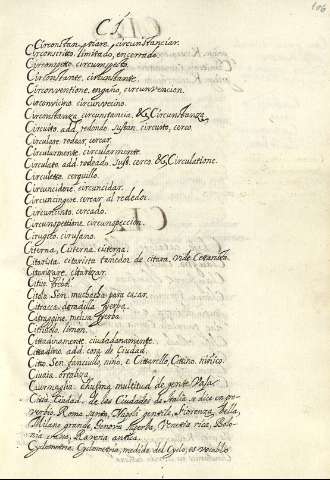 106
C I.
Circonstantiare, circunstanciar.
Circonscrito. limitado, encerrado.
Circonstante. circunstante.
Circonventione. engaño, circunvencion.
Circonvicino. circunvecino.
Circonstanza circunstancia. & Circunstanza
Circuito. add. redondo. sustan. circuito, cerco.
Circulare. rodear, cercar.
Circularmente. circularmente.
Circulato. add. rodeado. Sust. cerco. & Circulatione.
Circuletto. cerquillo.
Circuncidere. circuncidar.
Circuncingere. cercar al rededor.
Circuncinto. cercado.
Circunspettione. circunspeccion.
Cirugico. cirujano.
Cisterna. cisterna.
Citarista. citarista tañedor de citara.
Citarizare. citarizar.
Citella. Sen. muchacha para casar.
Citraggine. melisa yerba.
limon.
Cittadinamente. ciudadanamente.
Cittadino. add. cosa de Ciudad.
Cito. Sen. fanciullo, niño. e Cittarello, Cittino. niñico.
Ciurmaglia. chusma multitud de gente baja.
Città. Ciudad. de las Ciudades de Italia se dice en pro-
verbio, Roma santa, Napoli gentile, Fiorenza bella,
Milano grande, Genova superba, Venetia rica, Bolo-
nia Ravena antica.
Cylometria. medida del Cylo, es vocablo